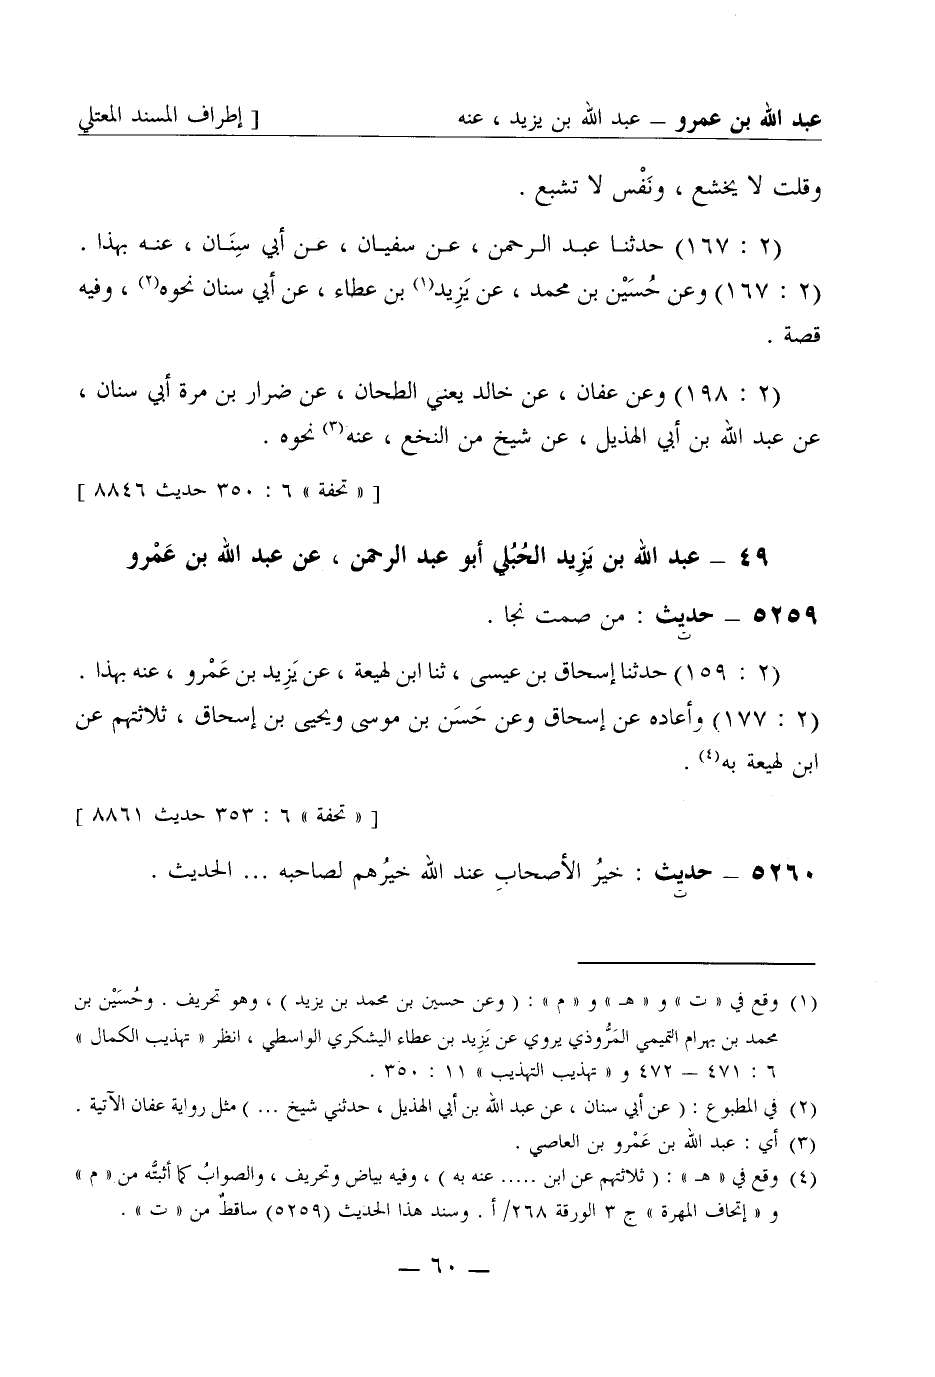 عبد الله بن عمرو – عبد الله بن يزيد ، عنه [ إطراف المسند المعتلي
وقلت لا يخشع ، ونَفْس لا تشبع .
(٢ : ١٦٧) حدثنا عبد الرحمن ، عن سفيان ، عن أبي سِنَان ، عنه بهذا .
(٢ : ١٦٧) وعن حُسَيْن بن محمد ، عن يَزِيد(١) بن عطاء ، عن أبي سنان نحوه(٢) ، وفيه
قصة .
(٢ : ١٩٨) وعن عفان ، عن خالد يعني الطحان ، عن ضرار بن مرة أبي سنان ،
عن عبد الله بن أبي الهذيل ، عن شيخ من النخع ، عنه(٣) نحوه .
[ « تحفة » ٦ : ٣٥٠ حديث ٨٨٤٦ ]
٤٩ – عبد الله بن يَزِيد الحُبُلي أبو عبد الرحمن ، عن عبد الله بن عَمْرو
٥٢٥٩ – حديث : من صمت نجا .
ت
(٢ : ١٥٩) حدثنا إسحاق بن عيسى ، ثنا ابن لهيعة ، عن يَزِيد بن عَمْرو ، عنه بهذا .
(٢ : ١٧٧) وأعاده عن إسحاق وعن حَسَن بن موسى ويحيى بن إسحاق ، ثلاثتهم عن
ابن لهيعة به(٤) .
[ « تحفة » ٦ : ٣٥٣ حديث ٨٨٦١ ]
٥٢٦٠ – حديث : خيرُ الأصحابِ عند الله خيرُهم لصاحبه ... الحديث .
ت
(١) وقع في « ت » و « هـ » و « م » : ( وعن حسين بن محمد بن يزيد ) ، وهو تحريف . وحُسَيْن بن
محمد بن بهرام التميمي المَرُّوذي يروي عن يَزِيد بن عطاء اليشكري الواسطي ، انظر « تهذيب الكمال »
٦ : ٤٧١ – ٤٧٢ و « تهذيب التهذيب » ١١ : ٣٥٠ .
(٢) في المطبوع : ( عن أبي سنان ، عن عبد الله بن أبي الهذيل ، حدثني شيخ ... ) مثل رواية عفان الآتية .
(٣) أي : عبد الله بن عَمْرو بن العاصي .
(٤) وقع في « هـ » : ( ثلاثتهم عن ابن ..... عنه به ) ، وفيه بياض وتحريف ، والصوابُ كما أثبتُّه من « م »
و « إتحاف المهرة » ج ٣ الورقة ٢٦٨/ أ . وسند هذا الحديث (٥٢٥٩) ساقطٌ من « ت » .
– ٦٠ –